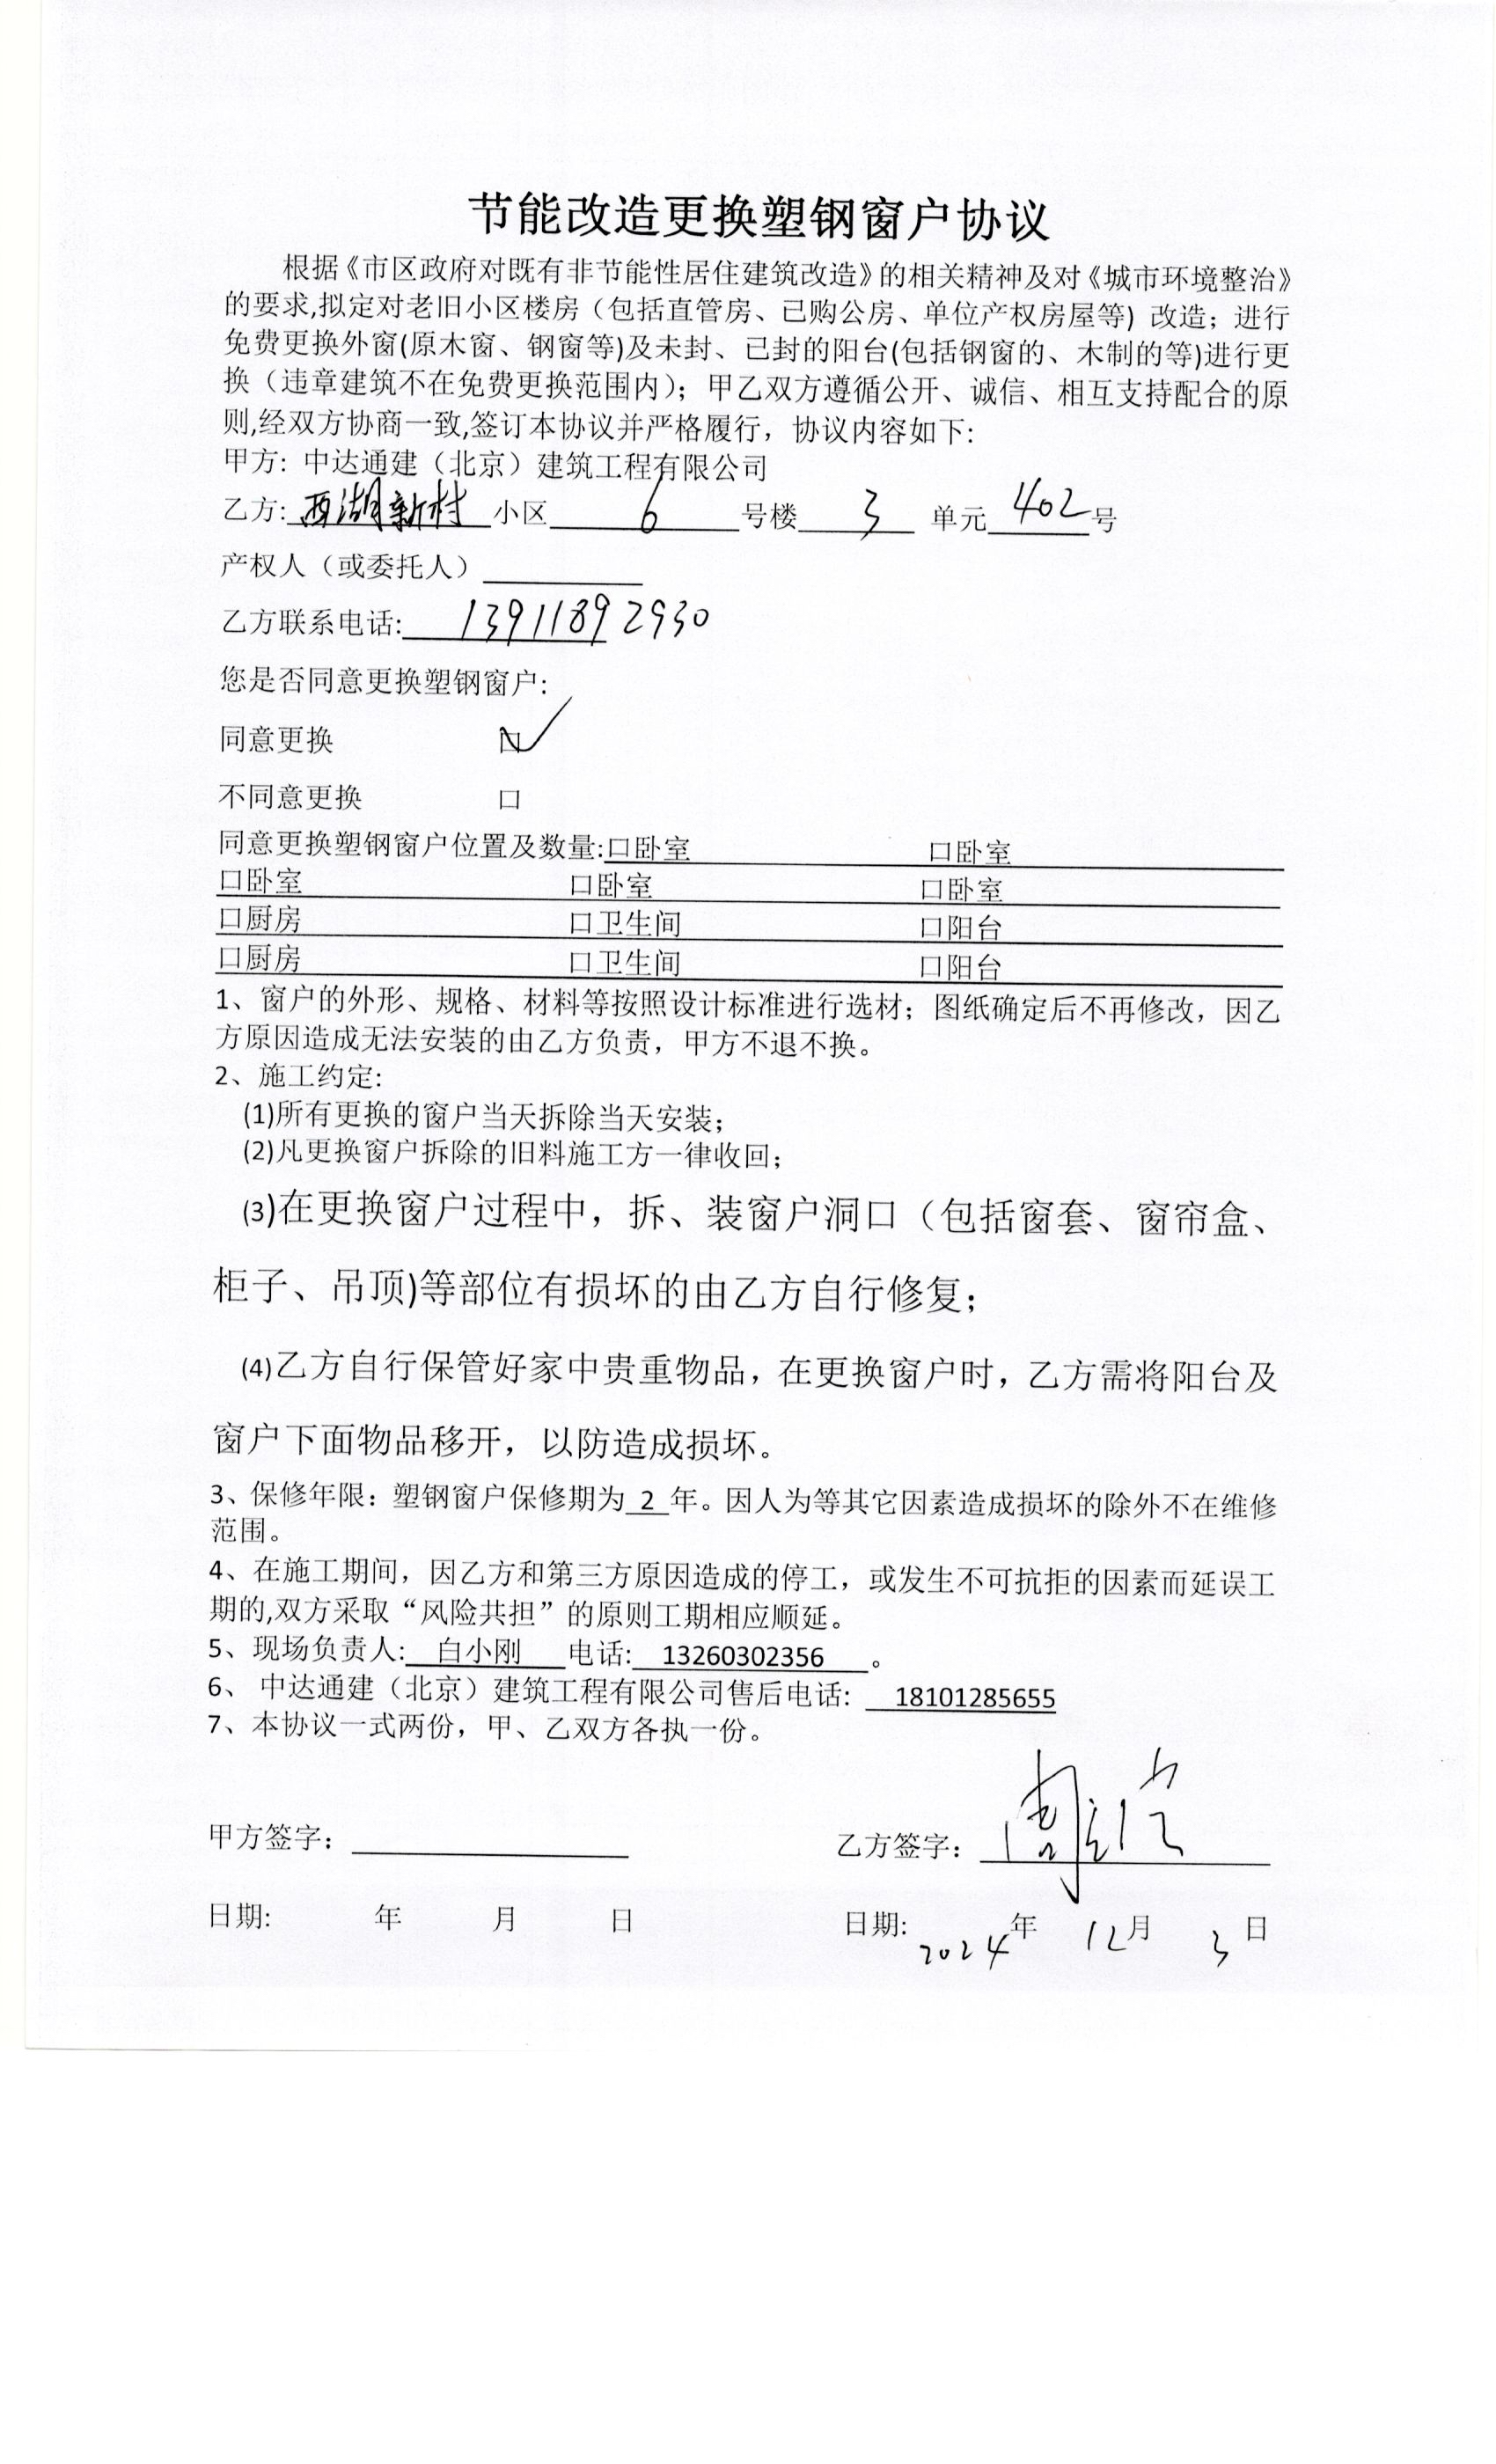 节能改造更换塑钢窗户协议
根据《市区政府对既有非节能性居住建筑改造》的相关精神及对《城市环境整治》
的要求,拟定对老旧小区楼房（包括直管房、已购公房、单位产权房屋等）改造；进行
免费更换外窗(原木窗、钢窗等)及未封、已封的阳台(包括钢窗的、木制的等)进行更
换（违章建筑不在免费更换范围内）；甲乙双方遵循公开、诚信、相互支持配合的原
则,经双方协商一致,签订本协议并严格履行，协议内容如下:
甲方: 中达通建（北京）建筑工程有限公司
乙方: 西湖新村 小区 6 号楼 3 单元 402 号
产权人（或委托人）
乙方联系电话: 13911892930
您是否同意更换塑钢窗户:
同意更换 ☑
不同意更换 口
同意更换塑钢窗户位置及数量:口卧室 口卧室
口卧室 口卧室 口卧室
口厨房 口卫生间 口阳台
口厨房 口卫生间 口阳台
1、窗户的外形、规格、材料等按照设计标准进行选材；图纸确定后不再修改，因乙
方原因造成无法安装的由乙方负责，甲方不退不换。
2、施工约定:
(1)所有更换的窗户当天拆除当天安装；
(2)凡更换窗户拆除的旧料施工方一律收回；
(3)在更换窗户过程中，拆、装窗户洞口（包括窗套、窗帘盒、
柜子、吊顶)等部位有损坏的由乙方自行修复；
(4)乙方自行保管好家中贵重物品，在更换窗户时，乙方需将阳台及
窗户下面物品移开，以防造成损坏。
3、保修年限：塑钢窗户保修期为 2 年。因人为等其它因素造成损坏的除外不在维修
范围。
4、在施工期间，因乙方和第三方原因造成的停工，或发生不可抗拒的因素而延误工
期的,双方采取“风险共担”的原则工期相应顺延。
5、现场负责人: 白小刚 电话: 13260302356 。
6、 中达通建（北京）建筑工程有限公司售后电话: 18101285655
7、本协议一式两份，甲、乙双方各执一份。
甲方签字： 乙方签字：
日期: 年 月 日 日期: 2024年 12月 3日